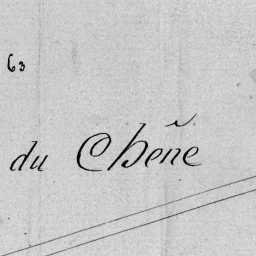 63
du Chêne